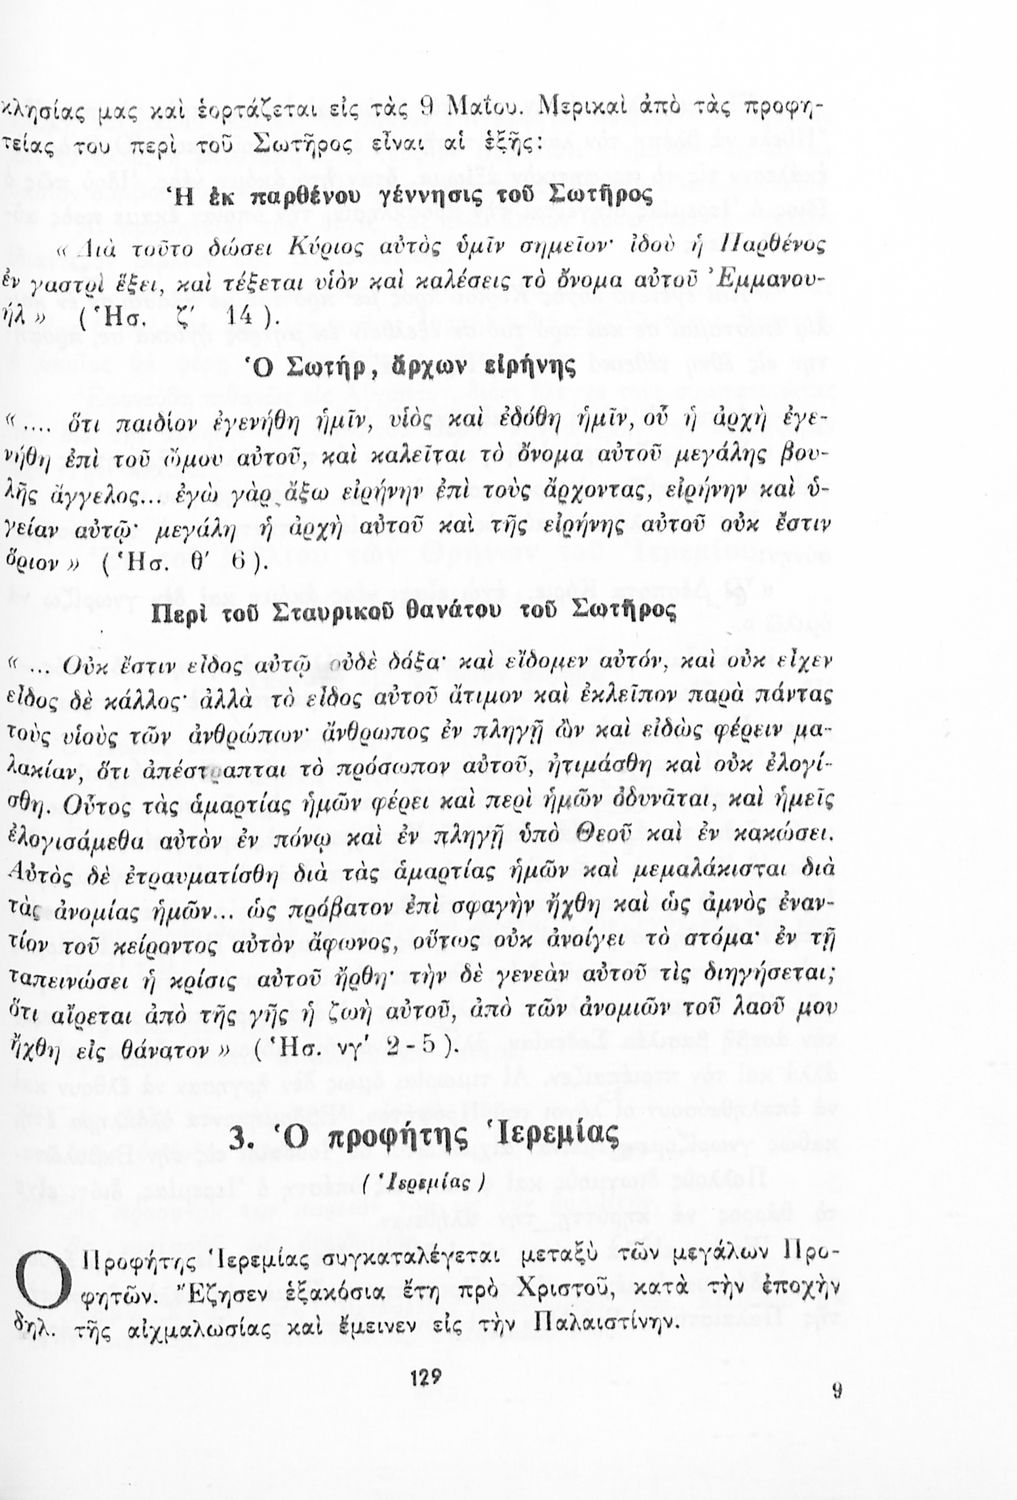 κλησίας μας καὶ ἑορτάζεται εἰς τὰς 9 Μαΐου. Μερικαὶ ἀπὸ τὰς προφη-
τείας του περὶ τοῦ Σωτῆρος εἶναι αἱ ἑξῆς:
Ἡ ἐκ παρθένου γέννησις τοῦ Σωτῆρος
« Διὰ τοῦτο δώσει Κύριος αὐτὸς ὑμῖν σημεῖον· ἰδοὺ ἡ Παρθένος
ἐν γαστρὶ ἕξει, καὶ τέξεται υἱὸν καὶ καλέσεις τὸ ὄνομα αὐτοῦ Ἐμμανου-
ήλ » ( Ἡσ. ζ′ 14 ).
Ὁ Σωτήρ, ἄρχων εἰρήνης
« .... ὅτι παιδίον ἐγενήθη ἡμῖν, υἱὸς καὶ ἐδόθη ἡμῖν, οὗ ἡ ἀρχὴ ἐγε-
νήθη ἐπὶ τοῦ ὤμου αὐτοῦ, καὶ καλεῖται τὸ ὄνομα αὐτοῦ μεγάλης βου-
λῆς ἄγγελος... ἐγὼ γὰρ ἄξω εἰρήνην ἐπὶ τοὺς ἄρχοντας, εἰρήνην καὶ ὑ-
γείαν αὐτῷ· μεγάλη ἡ ἀρχὴ αὐτοῦ καὶ τῆς εἰρήνης αὐτοῦ οὐκ ἔστιν
ὅριον » ( Ἡσ. θ′ 6 ).
Περὶ τοῦ Σταυρικοῦ θανάτου τοῦ Σωτῆρος
« ... Οὐκ ἔστιν εἶδος αὐτῷ οὐδὲ δόξα· καὶ εἴδομεν αὐτόν, καὶ οὐκ εἶχεν
εἶδος δὲ κάλλος· ἀλλὰ τὸ εἶδος αὐτοῦ ἄτιμον καὶ ἐκλεῖπον παρὰ πάντας
τοὺς υἱοὺς τῶν ἀνθρώπων· ἄνθρωπος ἐν πληγῇ ὢν καὶ εἰδὼς φέρειν μα-
λακίαν, ὅτι ἀπέστραπται τὸ πρόσωπον αὐτοῦ, ἠτιμάσθη καὶ οὐκ ἐλογί-
σθη. Οὗτος τὰς ἁμαρτίας ἡμῶν φέρει καὶ περὶ ἡμῶν ὀδυνᾶται, καὶ ἡμεῖς
ἐλογισάμεθα αὐτὸν ἐν πόνῳ καὶ ἐν πληγῇ ὑπὸ Θεοῦ καὶ ἐν κακώσει.
Αὐτὸς δὲ ἐτραυματίσθη διὰ τὰς ἁμαρτίας ἡμῶν καὶ μεμαλάκισται διὰ
τὰς ἀνομίας ἡμῶν... ὡς πρόβατον ἐπὶ σφαγὴν ἤχθη καὶ ὡς ἀμνὸς ἐναν-
τίον τοῦ κείροντος αὐτὸν ἄφωνος, οὕτως οὐκ ἀνοίγει τὸ στόμα· ἐν τῇ
ταπεινώσει ἡ κρίσις αὐτοῦ ἤρθη· τὴν δὲ γενεὰν αὐτοῦ τὶς διηγήσεται;
ὅτι αἴρεται ἀπὸ τῆς γῆς ἡ ζωὴ αὐτοῦ, ἀπὸ τῶν ἀνομιῶν τοῦ λαοῦ μου
ἤχθη εἰς θάνατον » ( Ἡσ. νγ′ 2 - 5 ).
3. Ὁ προφήτης Ἱερεμίας
( Ἱερεμίας )
Ὁ Προφήτης Ἱερεμίας συγκαταλέγεται μεταξὺ τῶν μεγάλων Προ-
φητῶν. Ἔζησεν ἑξακόσια ἔτη πρὸ Χριστοῦ, κατὰ τὴν ἐποχὴν
δηλ. τῆς αἰχμαλωσίας καὶ ἔμεινεν εἰς τὴν Παλαιστίνην.
129
9